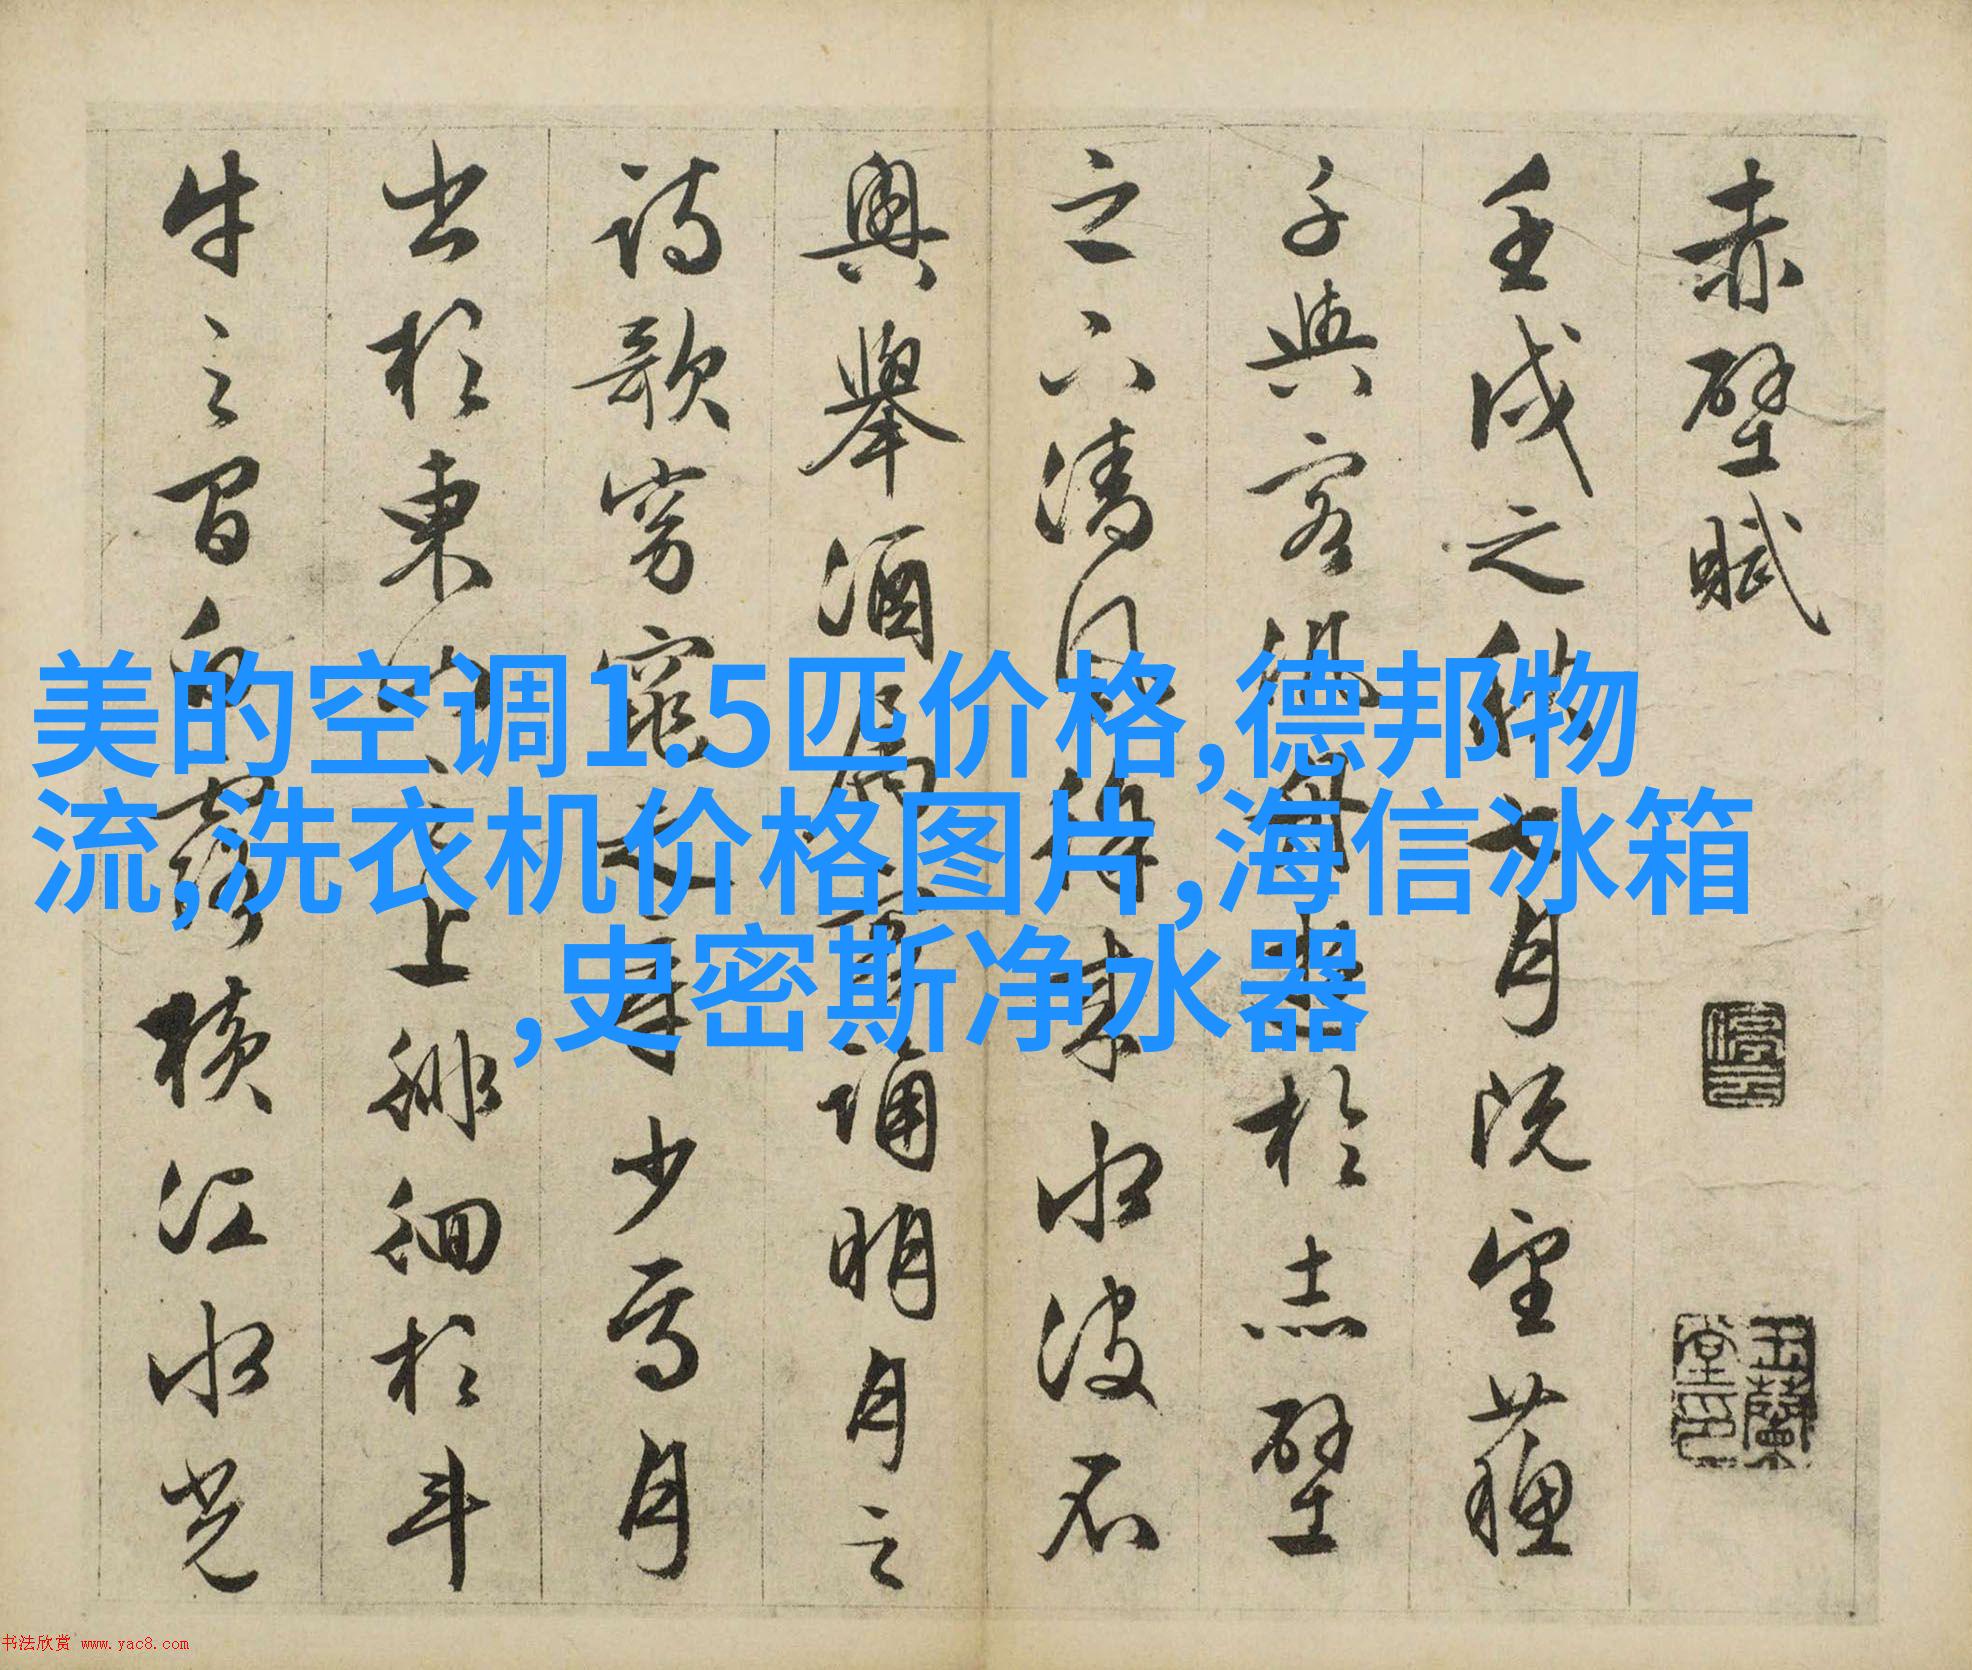 赤壁賦
壬戌之秋七月既望蘇
子與客泛舟遊於赤壁
之下清風徐來水波不
興舉酒屬客誦明月之
詩歌窈窕之章少焉月
出於東山之上徘徊於斗
牛之間白露橫江水光
停雲
玉蘭堂印
美的空调1.5匹价格,德邦物
流,洗衣机价格图片,海信冰箱
,史密斯净水器
书法欣赏 www.yac8.com